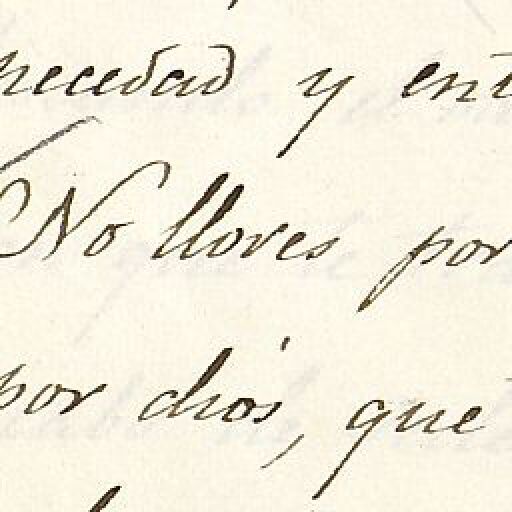 necedad y ent
No llores por
por dios, que